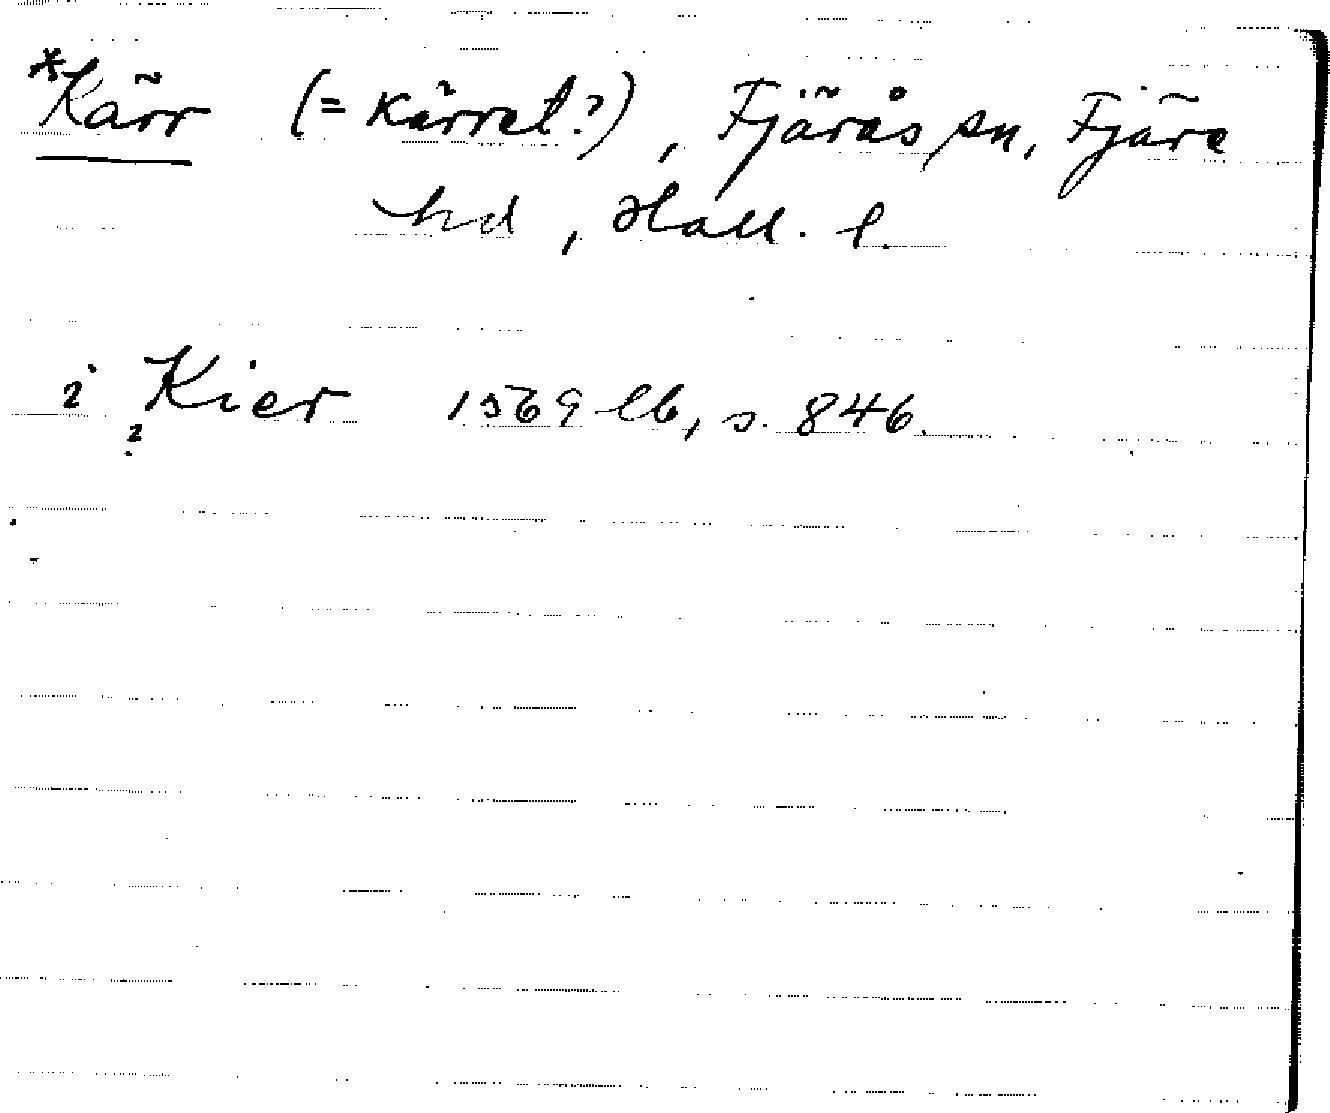 *Kärr (= Kärret?), Fjärås sn, Fjäre
hd, Hall. l.
i Kier 1569 lb, s. 846.
?